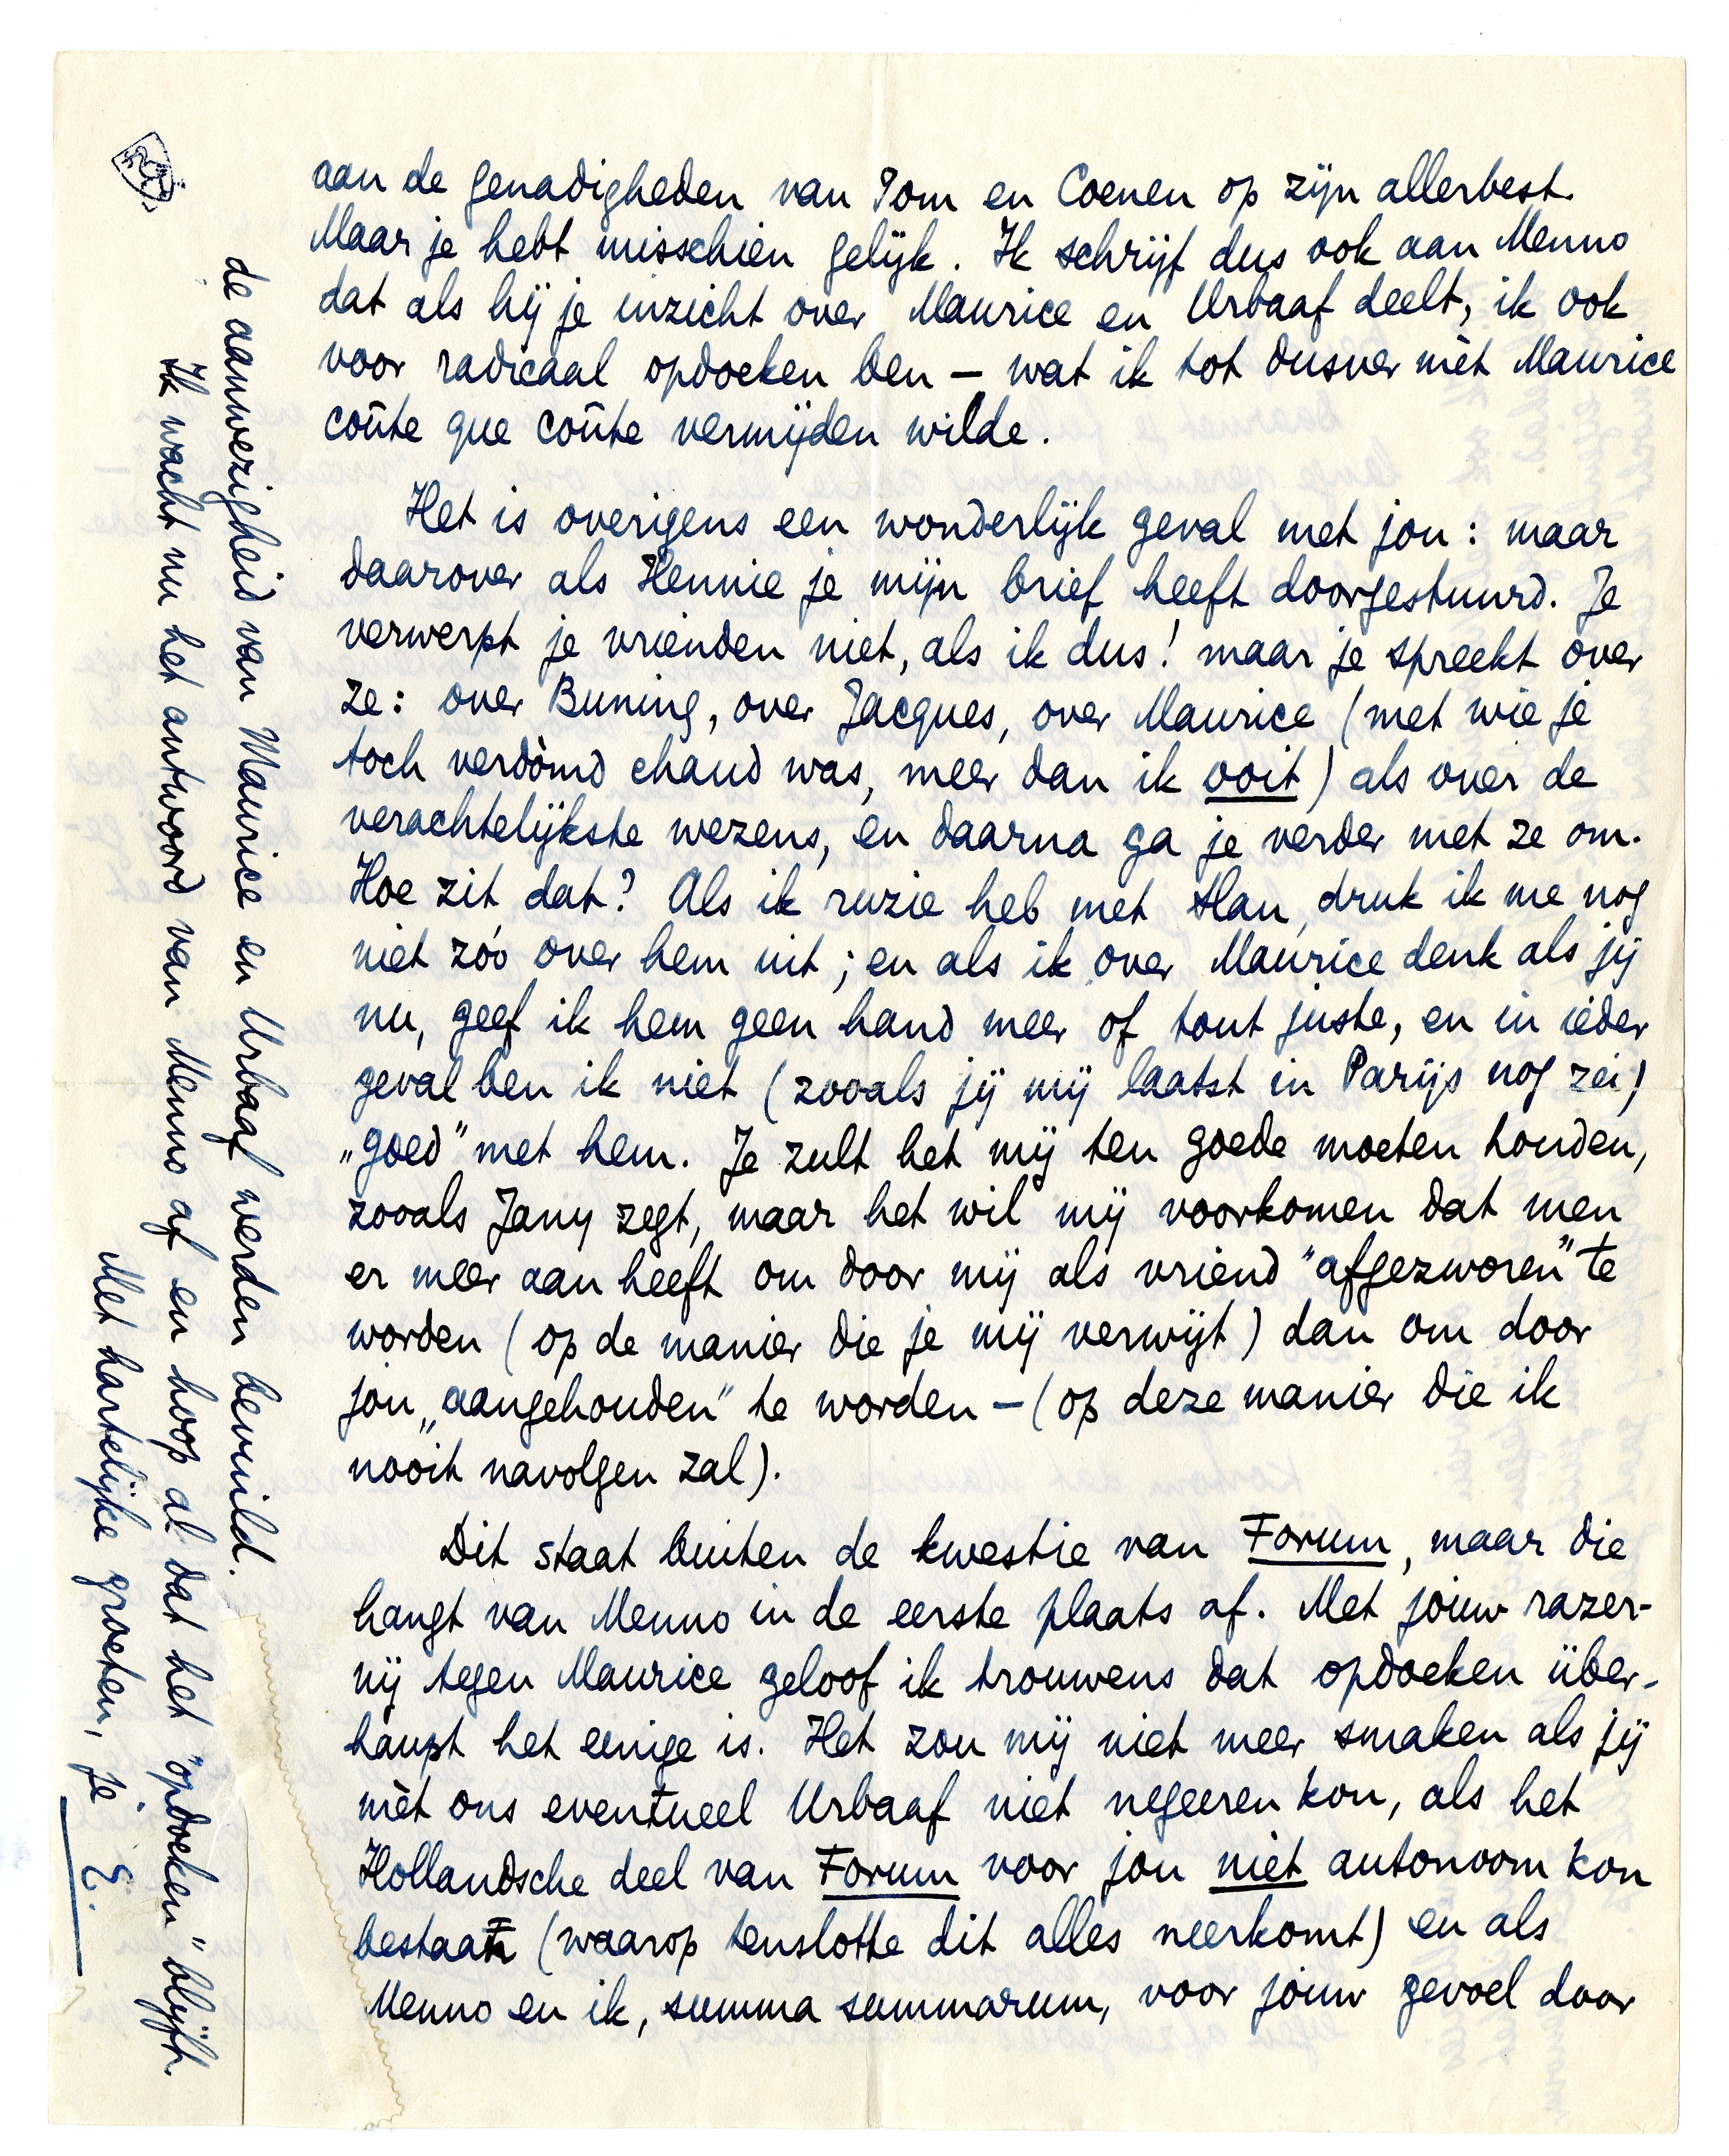 aan de genadigheden van Tom en Coenen op zijn allerbest.
Maar je hebt misschien gelijk. Ik schrijf dus ook aan Menno
dat als hij je inzicht over Maurice en Urbaaf deelt, ik ook
voor radicaal opdoeken ben – wat ik tot dusver mèt Maurice
coûte que coûte vermijden wilde.
Het is overigens een wonderlijk geval met jou: maar
daarover als Hennie je mijn brief heeft doorgestuurd. Je
verwerpt je vrienden niet, als ik dus! maar je spreekt over
ze: over Buning, over Jacques, over Maurice (met wie je
toch verdòmd chaud was, meer dan ik ooit) als over de
verachtelijkste wezens, en daarna ga je verder met ze om.
Hoe zit dat? Als ik ruzie heb met Han, druk ik me nog
niet zóó over hem uit; en als ik over Maurice denk als jij
nu, geef ik hem geen hand meer of tout juste, en in ieder
geval ben ik niet (zooals jij mij laatst in Parijs nog zei)
„goed" met hem. Je zult het mij ten goede moeten houden,
zooals Jany zegt, maar het wil mij voorkomen dat men
er meer aan heeft om door mij als vriend "afgezworen" te
worden (op de manier die je mij verwijt) dan om door
jou „aangehouden" te worden – (op deze manier die ik
nooit navolgen zal).
Dit staat buiten de kwestie van Forum, maar die
hangt van Menno in de eerste plaats af. Met jouw razer-
nij tegen Maurice geloof ik trouwens dat opdoeken über-
haupt het eenige is. Het zou mij niet meer smaken als jij
mèt ons eventueel Urbaaf niet negeeren kon, als het
Hollandsche deel van Forum voor jou niet autonoom kon
bestaan (waarop tenslotte dit alles neerkomt) en als
Menno en ik, summa summarum, voor jouw gevoel door
de aanwezigheid van Maurice en Urbaaf werden bevuild.
Ik wacht nu het antwoord van Menno af en hoop al dat het "opdoeken" blijft.
Met hartelijke groeten, je
E.